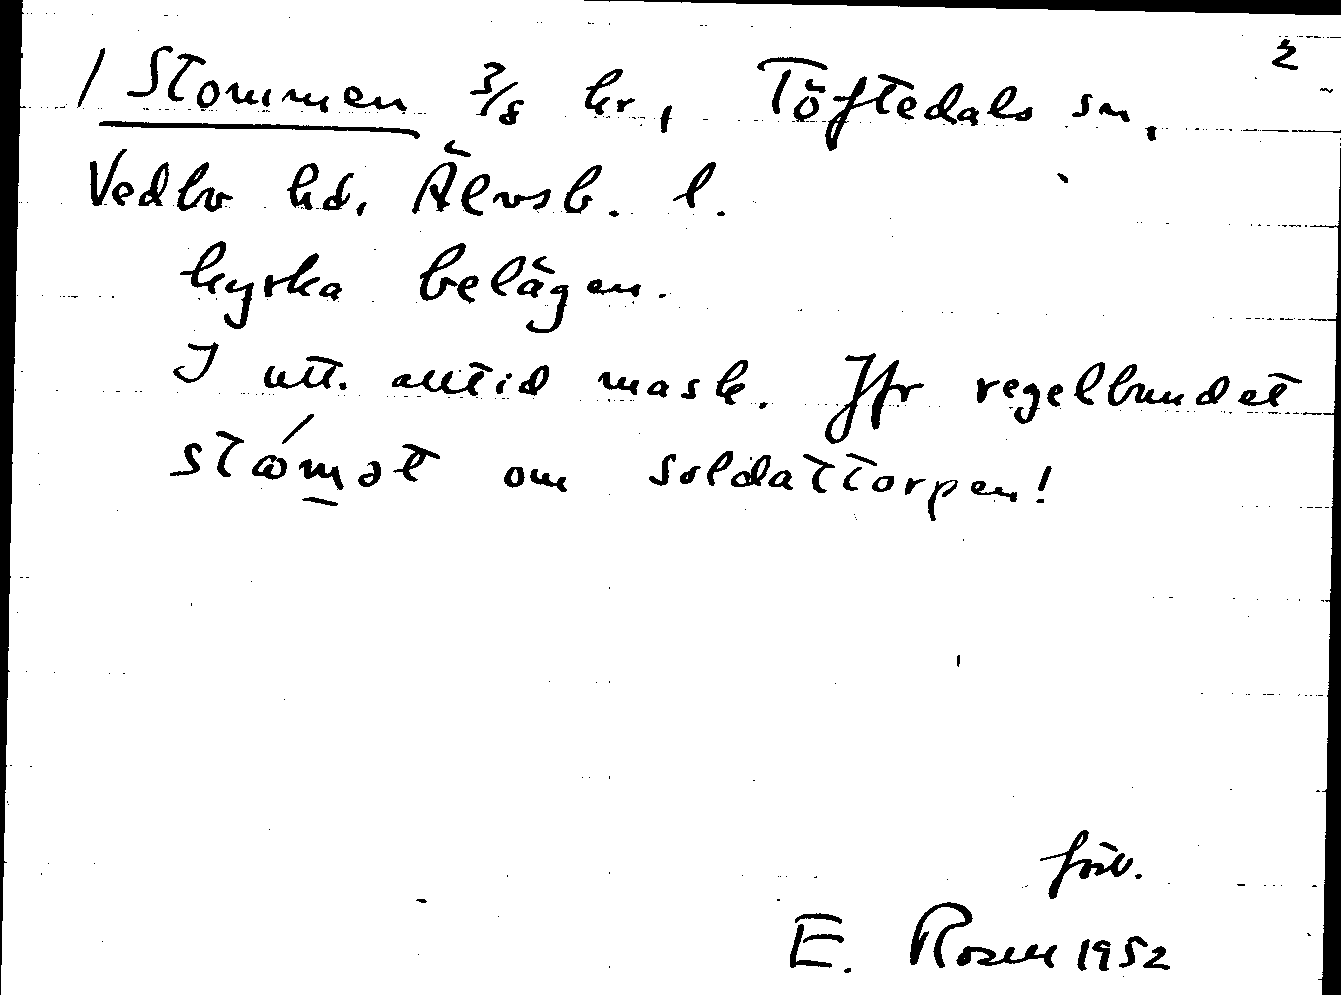 2
/ Stommen 3/8 hr, Töftedals sn,
Vedbo hd. Älvsb. l.
kyrka belägen.
I utt. alltid mask. Jfr regelbundet
stómǝt om soldattorpen!
förv.
E. Rosell 1952